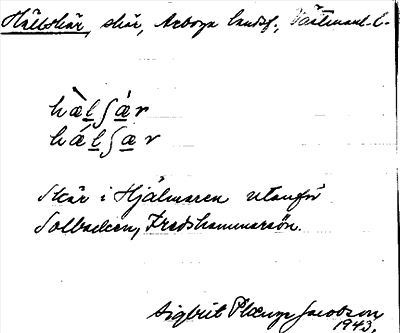 Hälbskär, skär, Arboga landsf., Västmanl. l.
hæ̀lʃǽr
hǽlʃær
Skär i Hjälmaren utanför
Solbacken, Fredshammarsön.
Sigbrit Plænge Jacobson
1943.